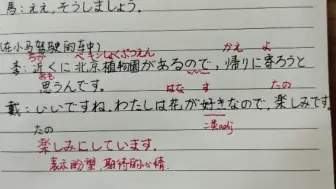 馬：ええ,そうしましょう。
(在小马驾驶的车中)
ちか ペキンしょくぶつえん かえ よ
李：近くに北京植物園があるので，帰りに寄ろうと
おも
思うんです。
はな す たの
戴：いいですね,わたしは花が好きなので,楽しみです。
たの
二类adj
楽しみにしています。
表示盼望,期待的心情